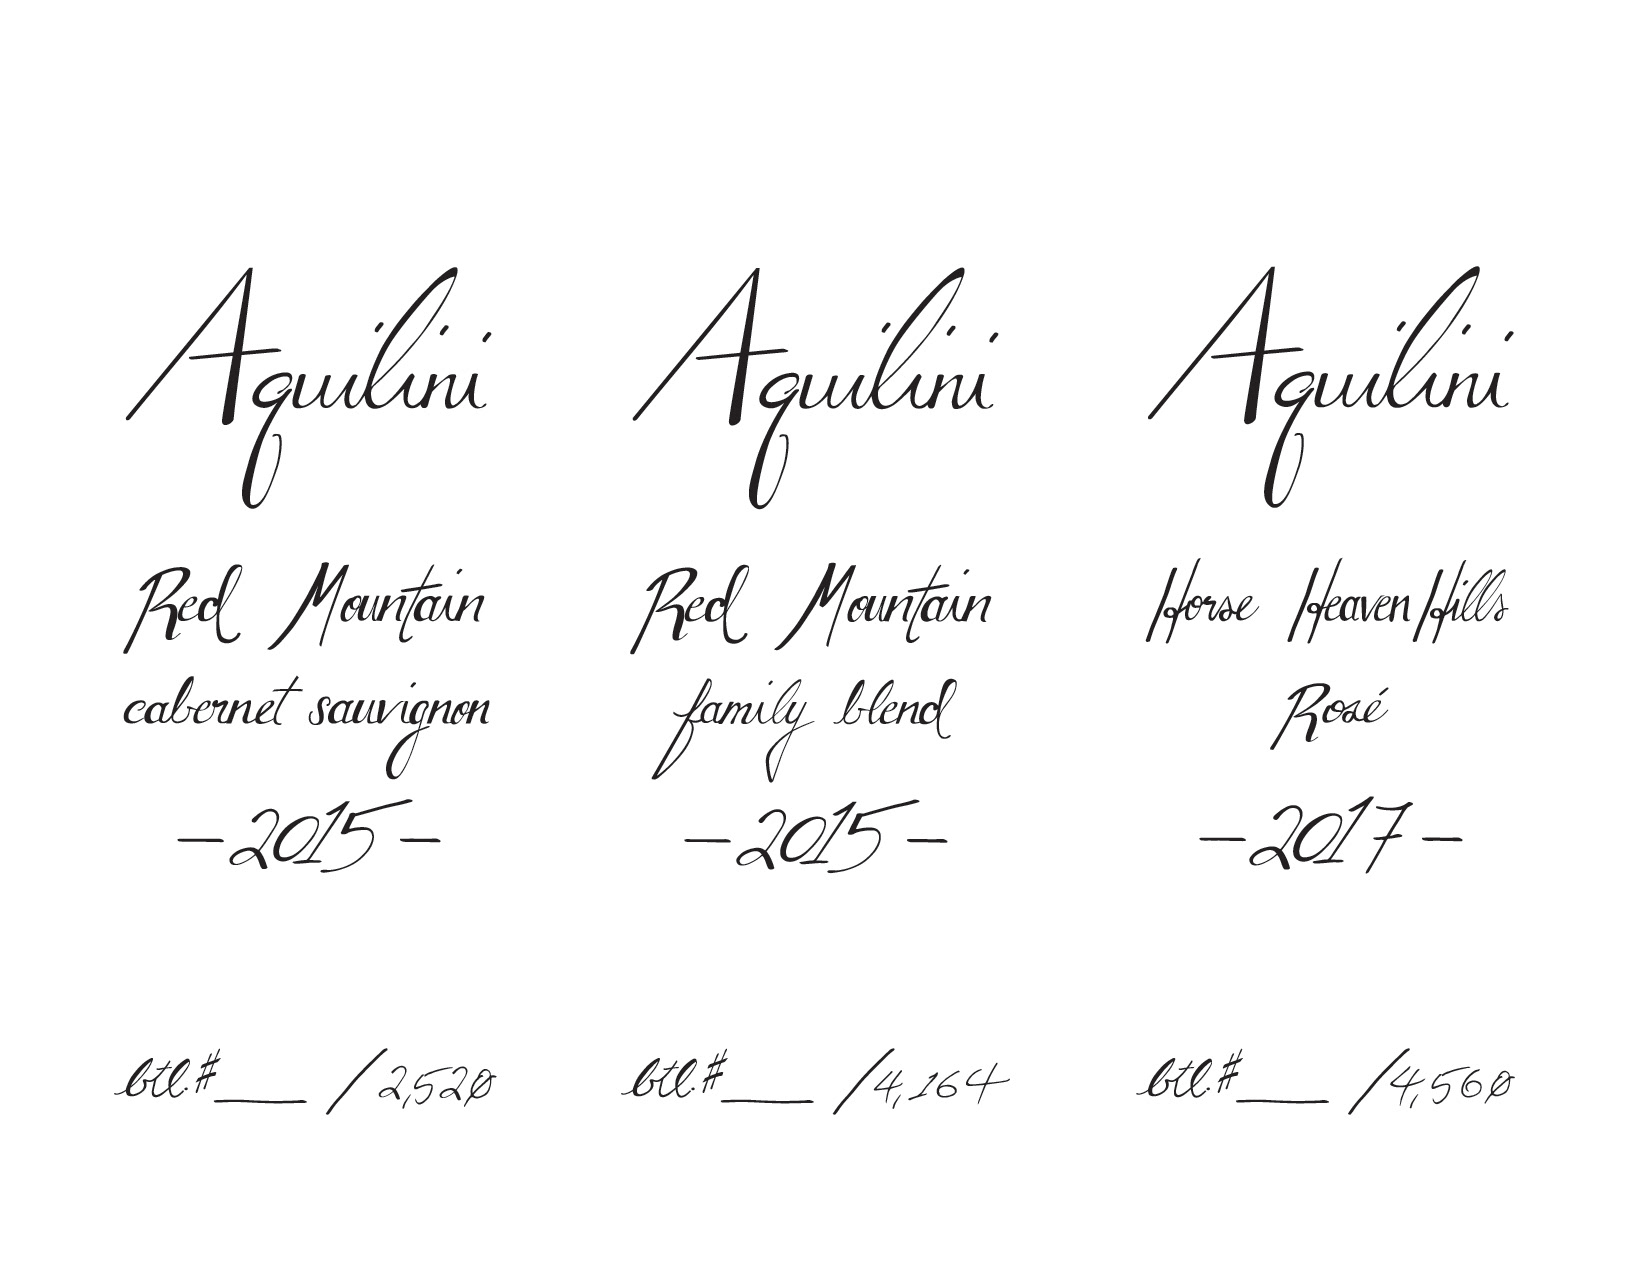 Aquilini
Red Mountain
cabernet sauvignon
—2015—
btl.#____ /2,520
Aquilini
Red Mountain
family blend
—2015—
btl.#____ /4,164
Aquilini
Horse Heaven Hills
Rosé
—2017—
btl.#____ /4,560